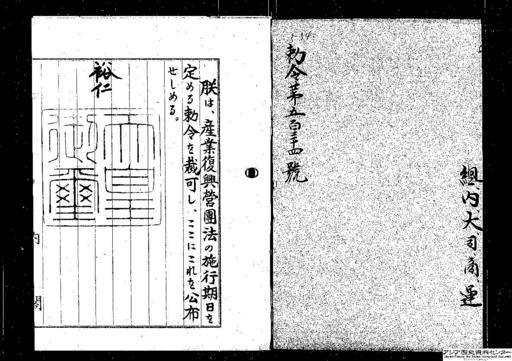 勅令第五百三十四號
總、内、大、司、商、運
朕は、産業復興營團法の施行期日を
定める勅令を裁可し、ここにこれを公布
せしめる。
裕仁
内閣
アジア歴史資料センター